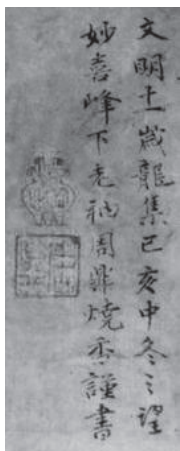 文明十一歳龍集己亥中冬之望
妙喜峰下老衲周鼎焼香謹書